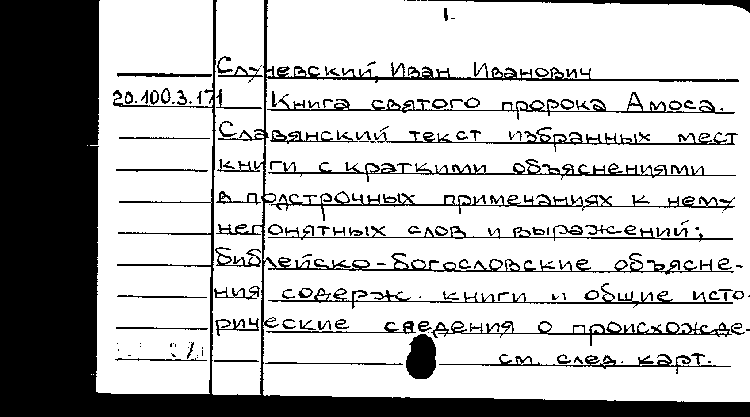 1.
Случевский, Иван Иванович
20.100.3.171 Книга святого пророка Амоса.
Славянский текст избранных мест
книги, с краткими объяснениями
в подстрочных примечаниях к нему
непонятных слов и выражений;
библейско-богословские объясне-
ния содерж. книги и общие исто-
рические сведения о происхожде-
см. след. карт.